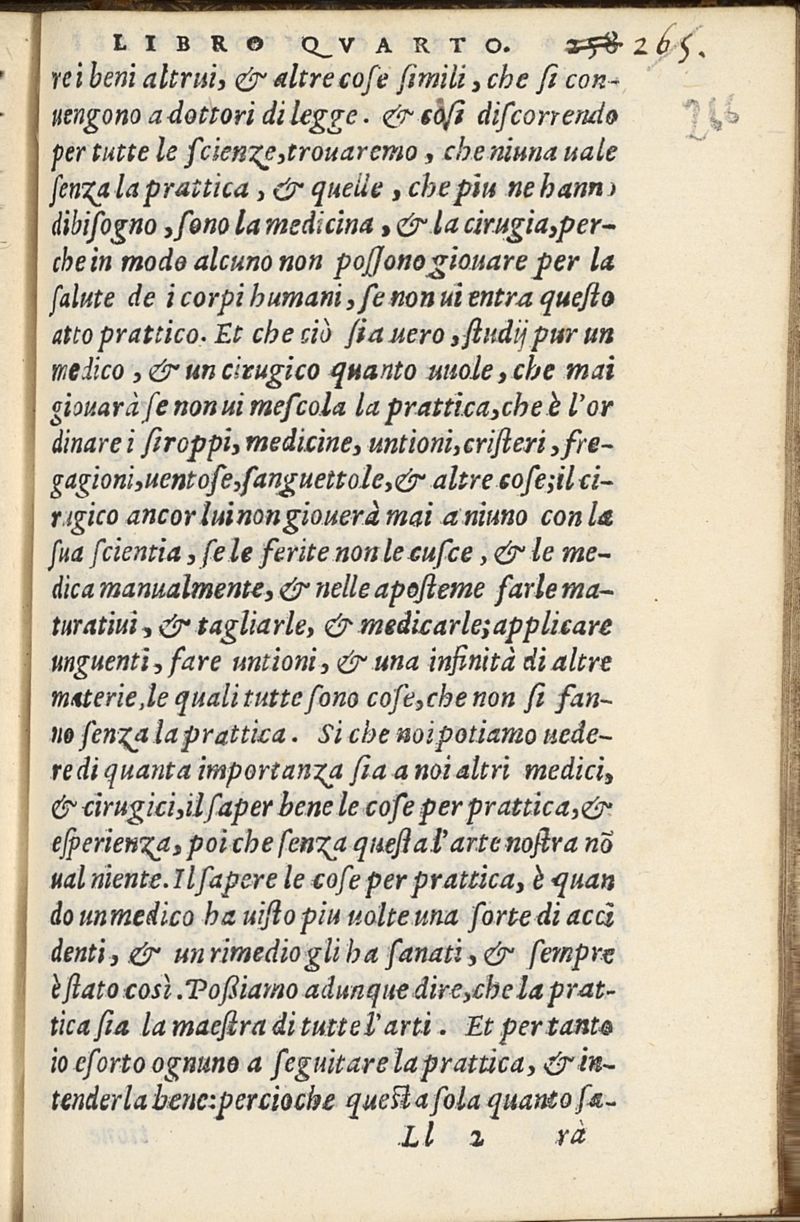 LIBRO QVARTO. 258 265.
266
re i beni altrui, & altre cose simili, che si con-
uengono a dottori di legge. & così discorrendo
per tutte le scienze, trouaremo, che niuna uale
senza la prattica, & quelle, che piu ne hanno
dibisogno, sono la medicina, & la cirugia, per-
che in modo alcuno non possono giouare per la
salute de i corpi humani, se non ui entra questo
atto prattico. Et che ciò sia uero, studij pur un
medico, & un cirugico quanto uuole, che mai
giouarà se non ui mescola la prattica, che è l'or
dinare i siroppi, medicine, untioni, cristeri, fre-
gagioni, uentose, sanguettole, & altre cose; il ci-
rugico ancor lui non giouerà mai a niuno con la
sua scientia, se le ferite non le cusce, & le me-
dica manualmente, & nelle aposteme farle ma-
turatiui, & tagliarle, & medicarle; applicare
unguenti, fare untioni, & una infinità di altre
materie, le quali tutte sono cose, che non si fan-
no senza la prattica. Si che noi potiamo uede-
re di quanta importanza sia a noi altri medici,
& cirugici, il saper bene le cose per prattica, &
esperienza, poi che senza questa l'arte nostra nõ
ual niente. Il sapere le cose per prattica, è quan
do un medico ha uisto piu uolte una sorte di acci
denti, & un rimedio gli ha sanati, & sempre
è stato così. Possiamo adunque dire, che la prat-
tica sia la maestra di tutte l'arti. Et per tanto
io esorto ognuno a seguitare la prattica, & in-
tenderla bene: percioche questa sola quanto sa-
Ll 2 rà